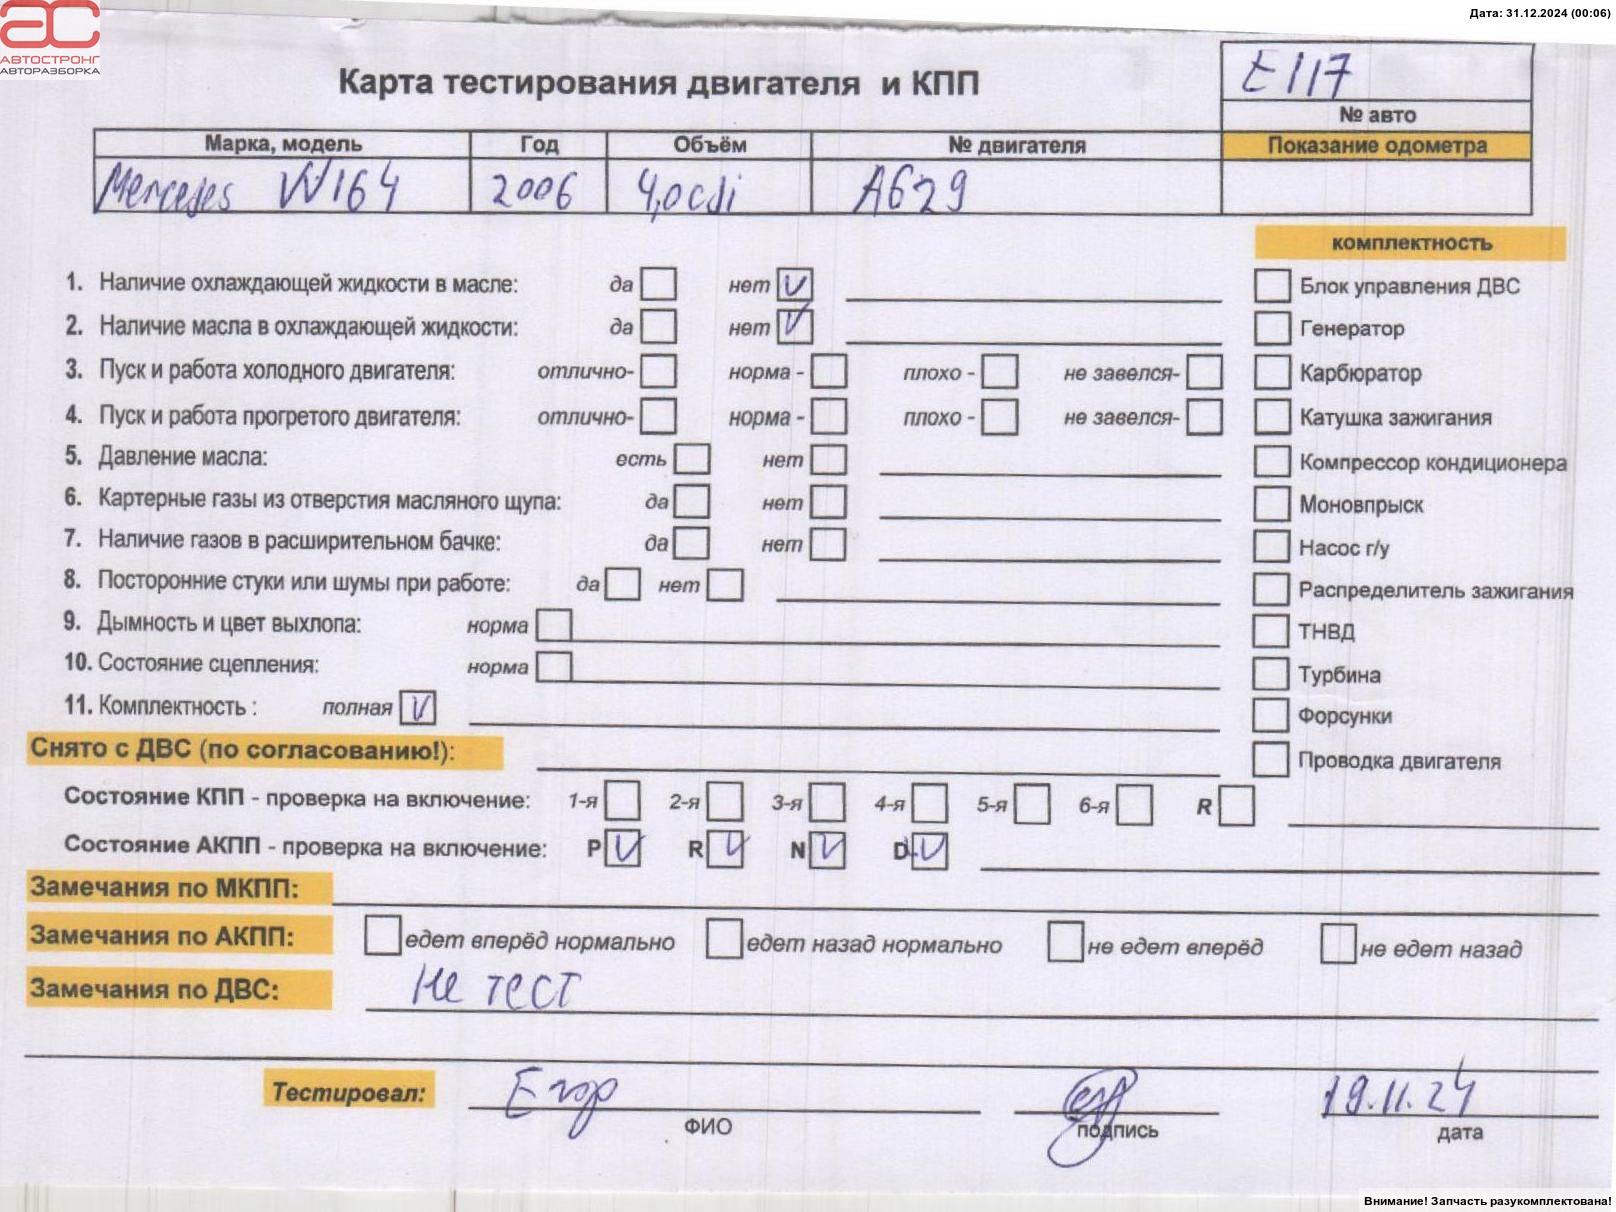 Дата: 31.12.2024 (00:06)
АС
АВТОСТРОНГ
АВТОРАЗБОРКА
Карта тестирования двигателя и КПП
E117
№ авто
Марка, модель Год Объём № двигателя Показание одометра
Mercedes W164 2006 4,0cdi A629
комплектность
1. Наличие охлаждающей жидкости в масле: да нет V
Блок управления ДВС
2. Наличие масла в охлаждающей жидкости: да нет V
Генератор
3. Пуск и работа холодного двигателя: отлично- норма - плохо - не завелся-
Карбюратор
4. Пуск и работа прогретого двигателя: отлично- норма - плохо - не завелся-
Катушка зажигания
5. Давление масла: есть нет
Компрессор кондиционера
6. Картерные газы из отверстия масляного щупа: да нет
Моновпрыск
7. Наличие газов в расширительном бачке: да нет
Насос г/у
8. Посторонние стуки или шумы при работе: да нет
Распределитель зажигания
9. Дымность и цвет выхлопа: норма
ТНВД
10. Состояние сцепления: норма
Турбина
11. Комплектность : полная V
Форсунки
Снято с ДВС (по согласованию!):
Проводка двигателя
Состояние КПП - проверка на включение: 1-я 2-я 3-я 4-я 5-я 6-я R
Состояние АКПП - проверка на включение: P V R V N V D V
Замечания по МКПП:
Замечания по АКПП: едет вперёд нормально едет назад нормально не едет вперёд не едет назад
Замечания по ДВС: Не тест
Тестировал: Егор 19.11.24
ФИО подпись дата
Внимание! Запчасть разукомплектована!